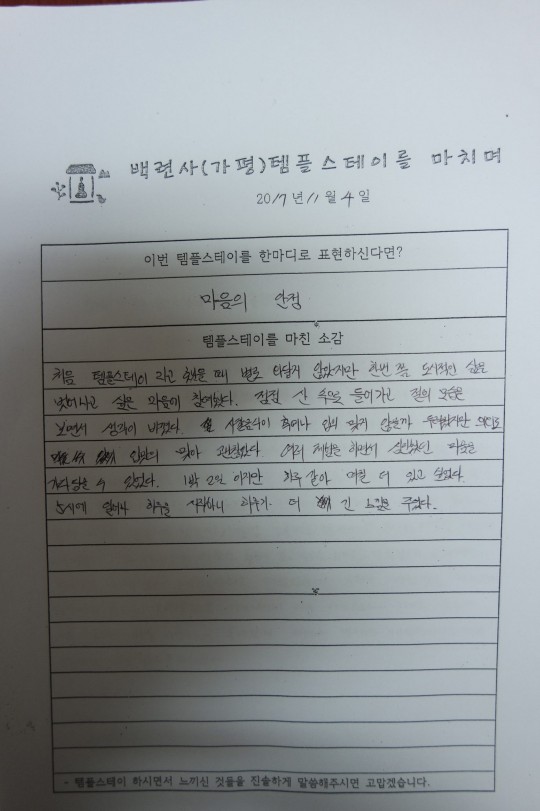 백련사(가평)템플스테이를 마치며
2017년 11월 4일
이번 템플스테이를 한마디로 표현하신다면?
마음의 안정
템플스테이를 마친 소감
처음 템플스테이 라고 했을 때 별로 와닿지 않았지만 한번 쯤 도시적인 삶을
벗어나고 싶은 마음에 참여했다. 점점 산 속으로 들어가고 절의 모습을
보면서 생각이 바뀌었다. 사찰음식이 혹여나 입에 맞지 않을까 두려웠지만 의외로
입맛에 맞아 괜찮았다. 여러 체험을 하면서 심란했던 마음을
가다듬을 수 있었다. 1박 2일 이지만 하루 같아 며칠 더 있고 싶었다.
5시에 일어나 하루를 시작하니 하루가 더 긴 느낌을 주었다.
- 템플스테이 하시면서 느끼신 것들을 진솔하게 말씀해주시면 고맙겠습니다.